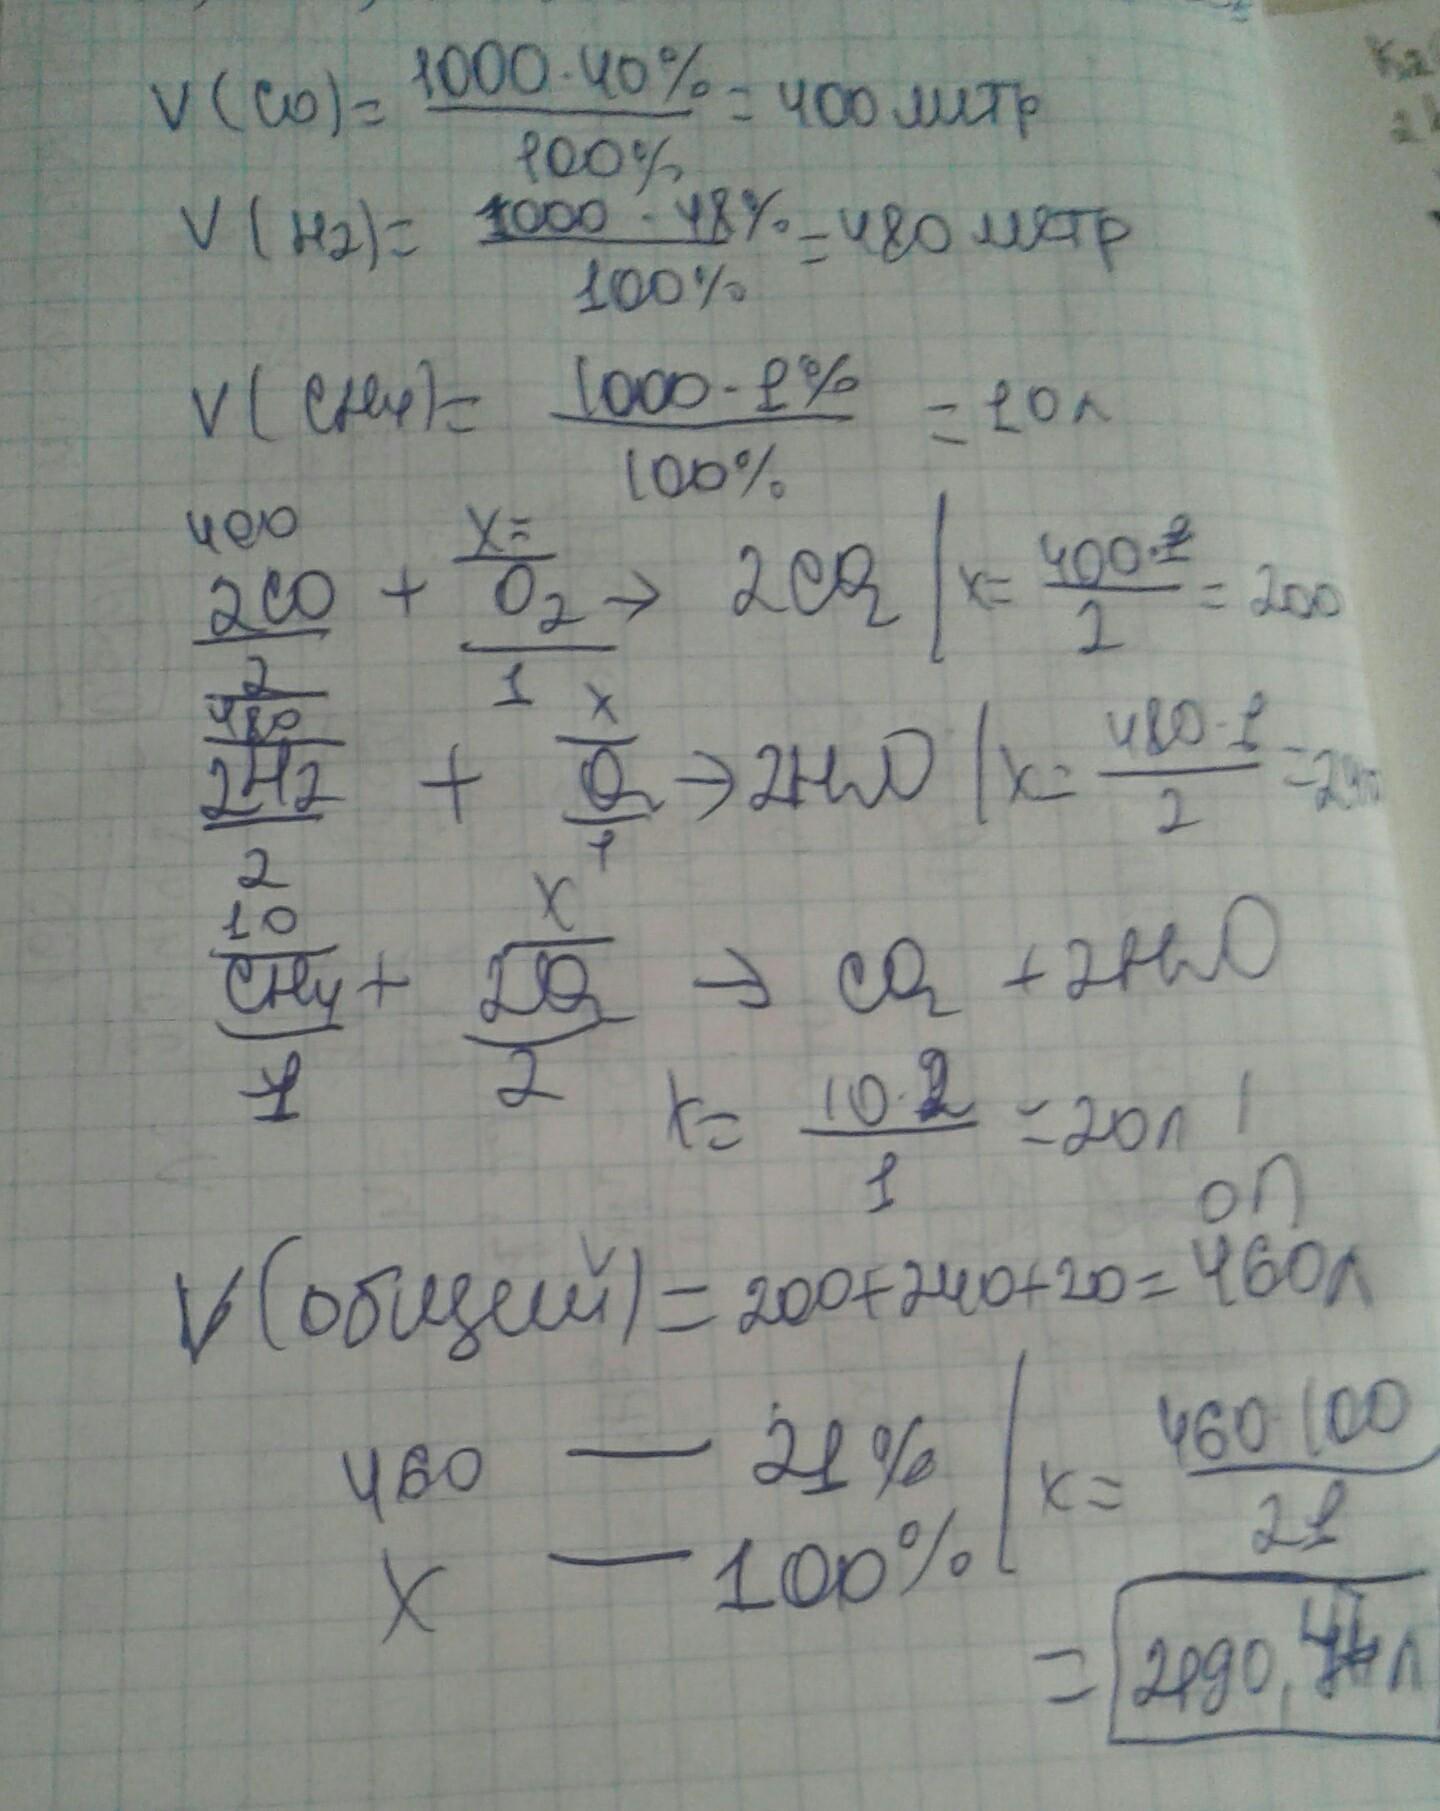 V(CO)= 1000·40% / 100% = 400 литр
V(H2)= 1000·48% / 100% = 480 литр
V(CH4)= 1000·1% / 100% = 10л
400 x=
2CO + O2 → 2CO2 | x= 400·1 / 2 = 200
2 1
480 x
2H2 + O2 → 2H2O | x= 480·1 / 2 = 240
2 1
10 x
CH4 + 2O2 → CO2 + 2H2O
1 2
x= 10·2 / 1 = 20л
V(общий)= 200+240+20= 460л
460 — 21% | x= 460·100 / 21
x — 100%
= 2190,44л